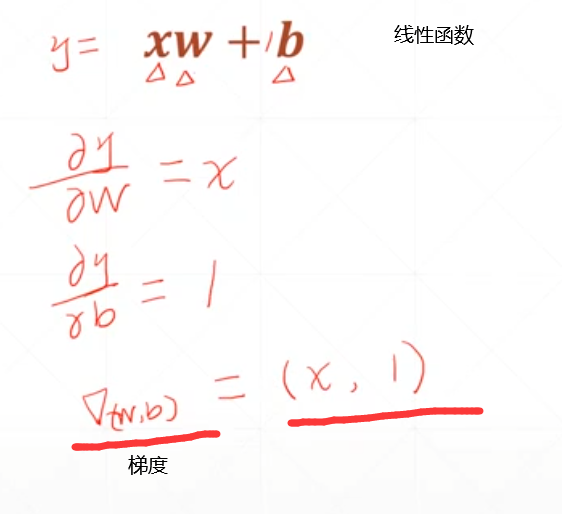 y = xw + 1b 线性函数
∂y/∂w = x
∂y/∂b = 1
∇(w,b) = (x, 1)
梯度